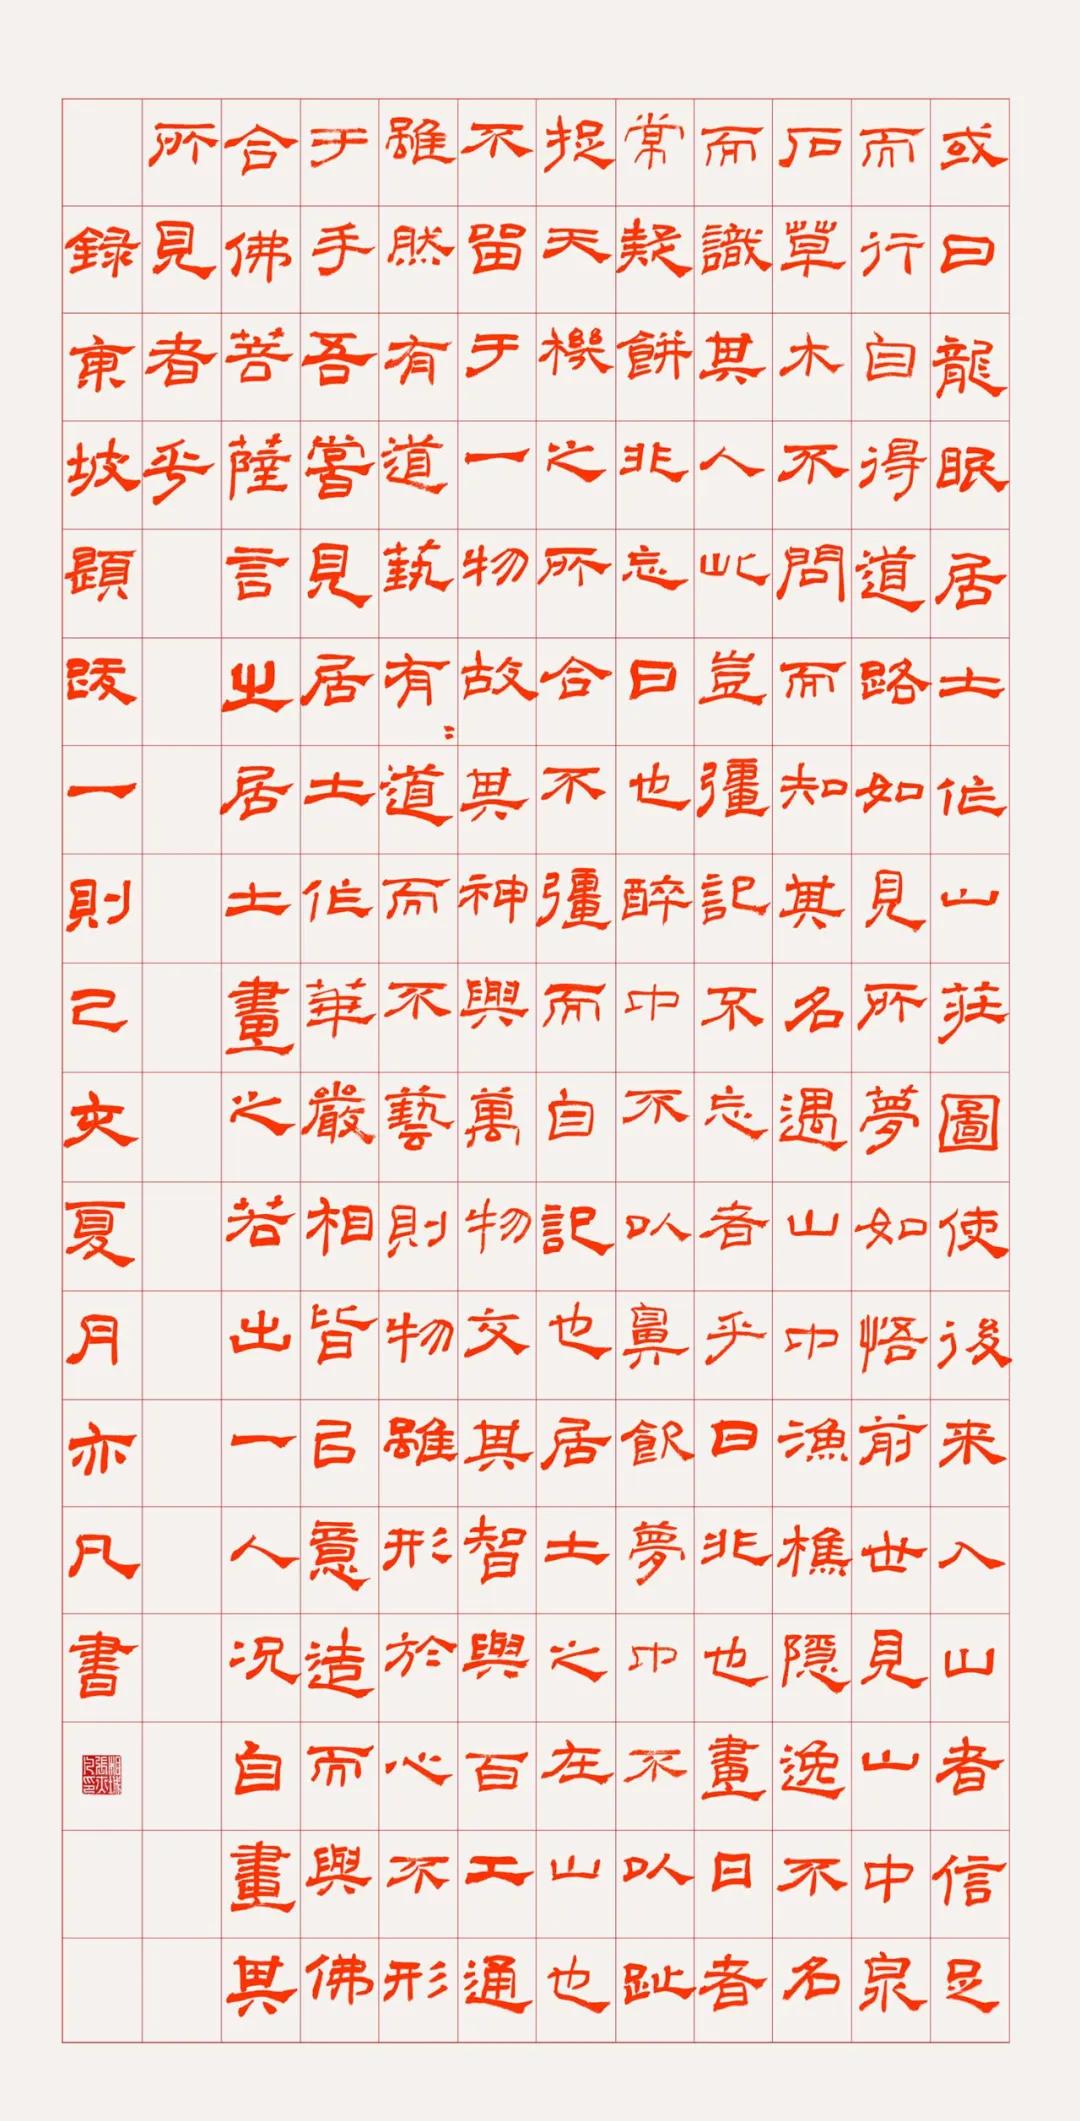 或曰龍眠居士作山莊圖使後来入山者信足
而行自得道路如見所夢如悟前世見山中泉
石草木不問而知其名遇山中漁樵隱逸不名
而識其人此豈彊記不忘者乎曰非也畫日者
常疑餅非忘日也醉中不以鼻飲夢中不以趾
捉天機之所合不彊而自記也居士之在山也
不留于一物故其神與萬物交其智與百工通
雖然有道藝有〻道而不藝則物雖形於心不形
于手吾嘗見居士作華嚴相皆㠯意造而與佛
合佛菩薩言之居士畫之若出一人况自畫其
所見者乎
録東坡題跋一則己亥夏月亦凡書
相城張亦凡印